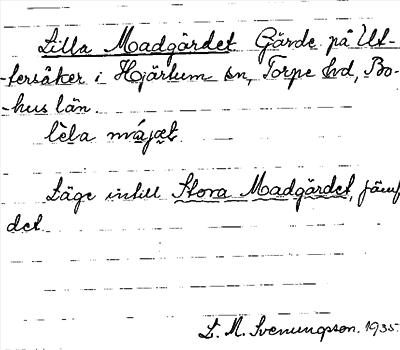 Lilla Madgärdet Gärde på Ut-
tersåker i Hjärtum sn, Torpe hd, Bo-
hus län.
lèla májæt.
Läge intill Stora Madgärdet, jämf
det
L. M. Svenungsson. 1935.